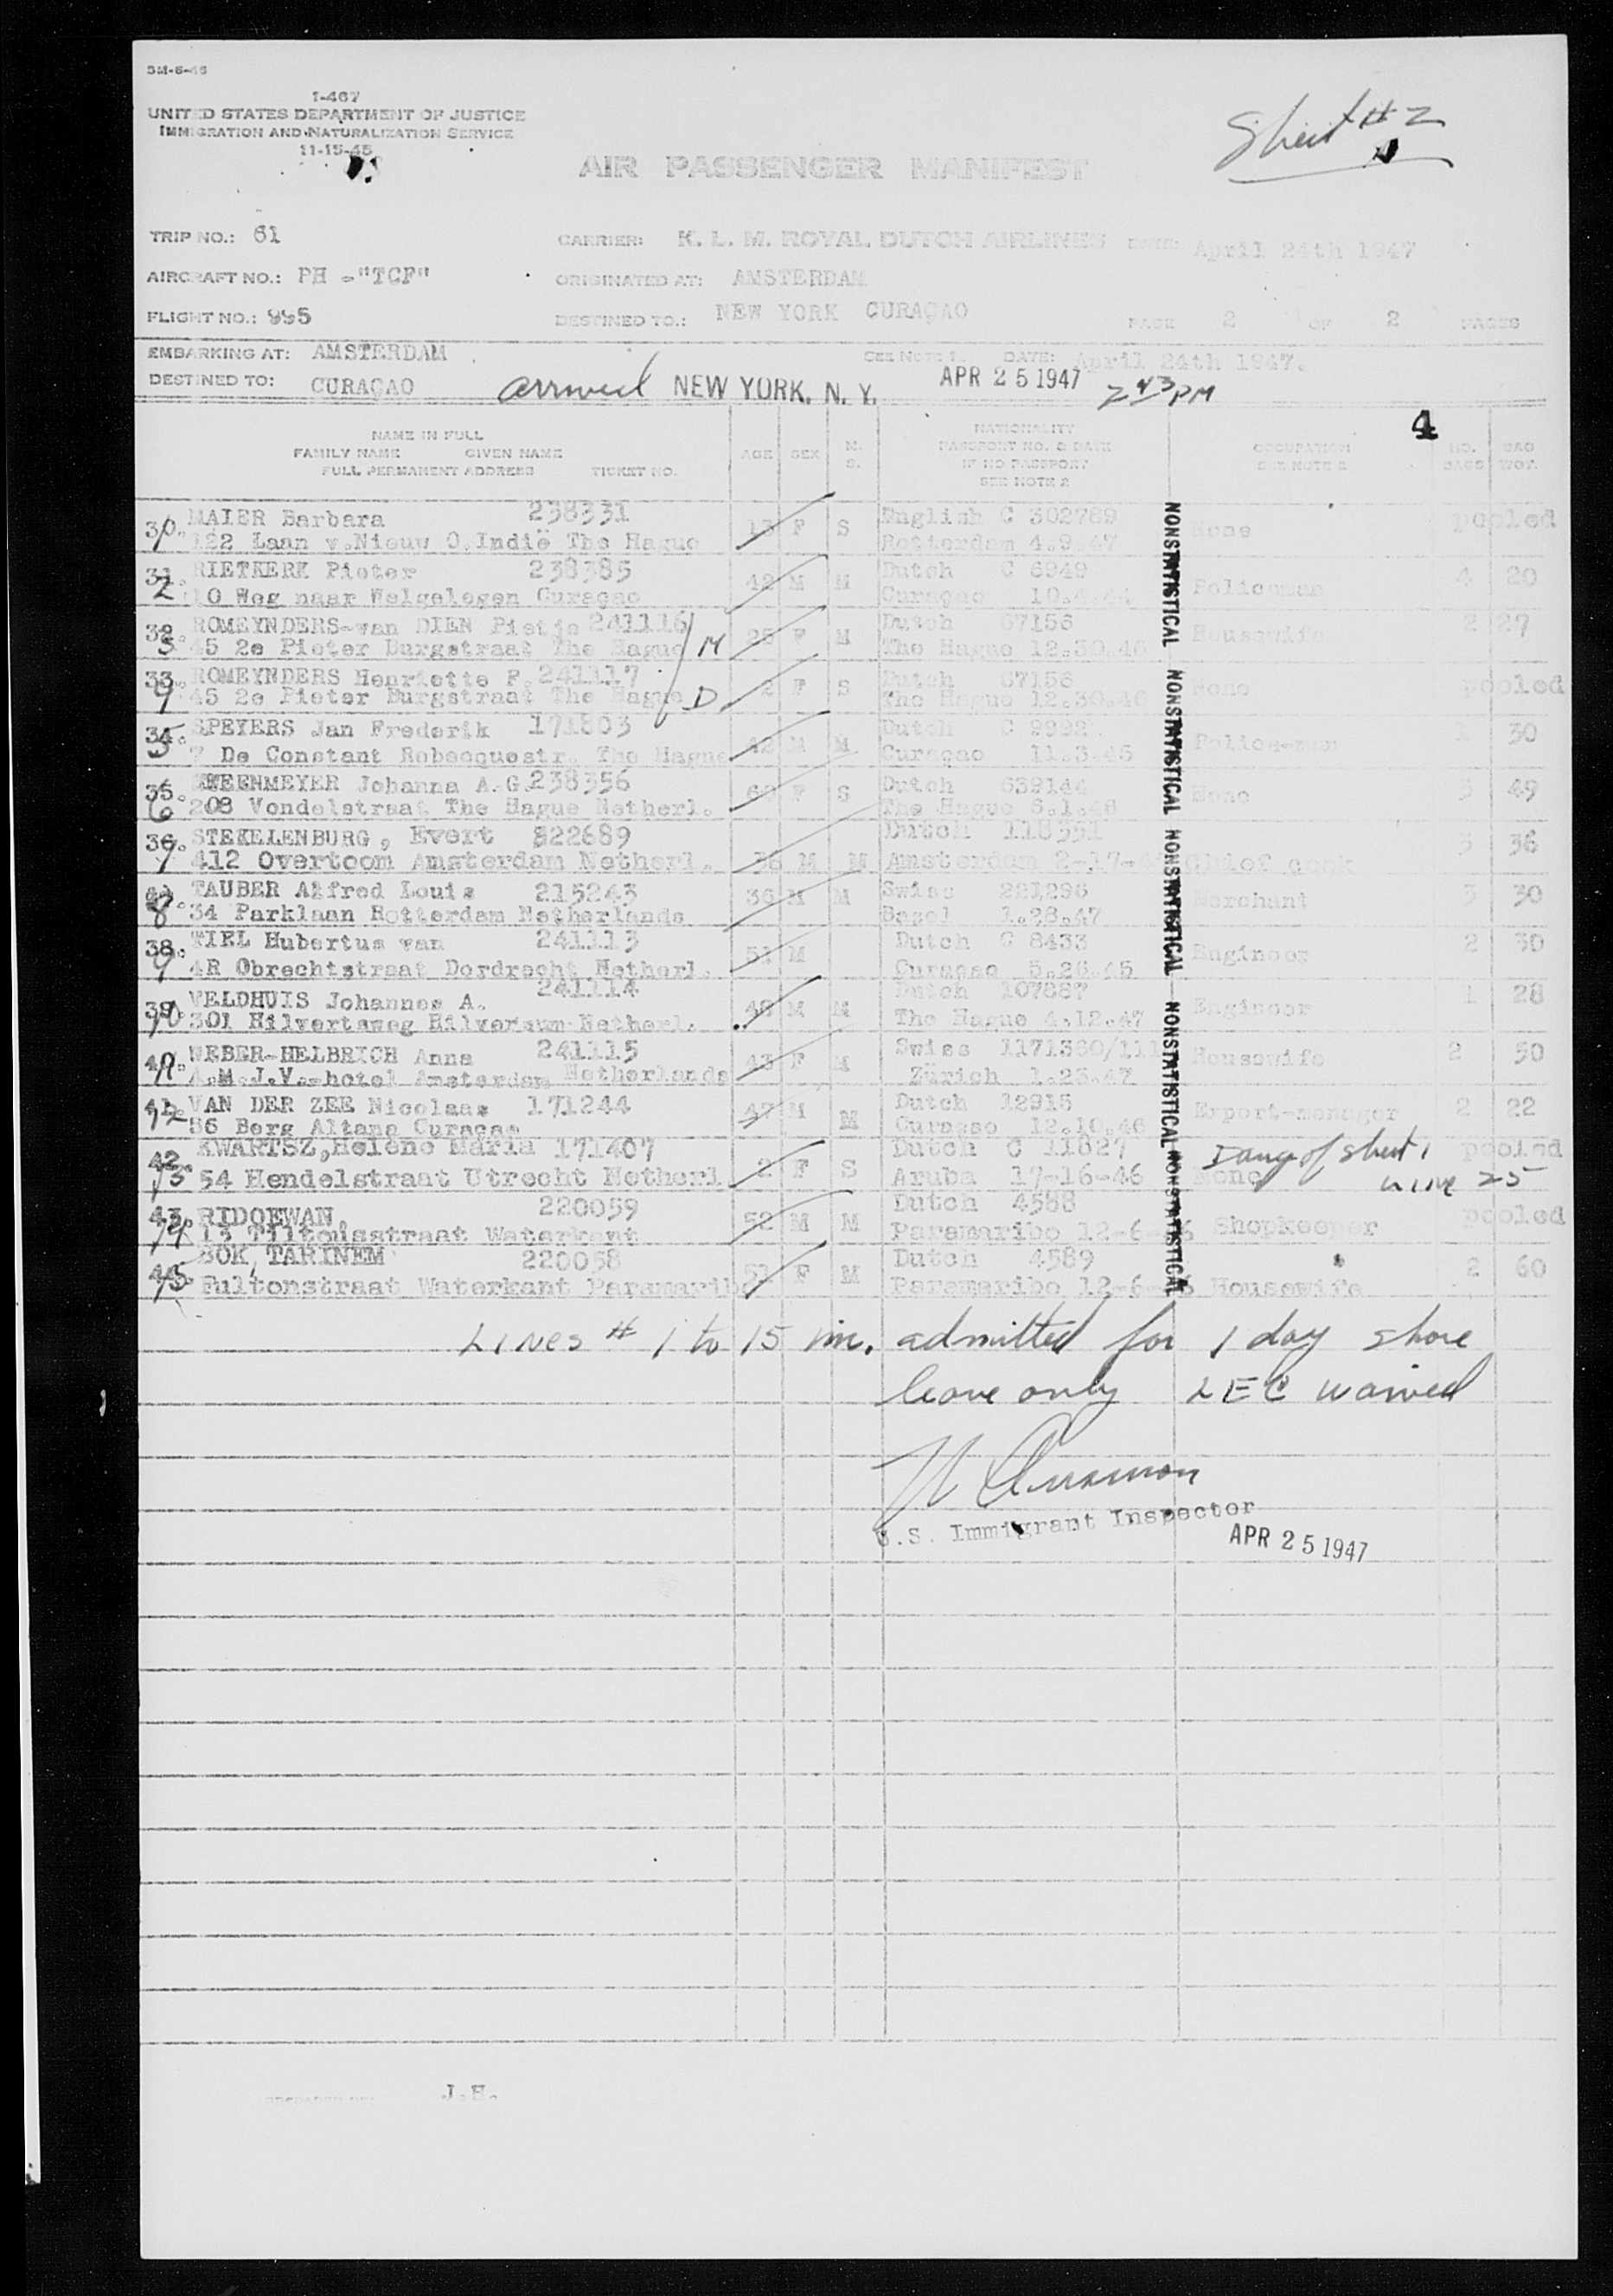 3M-6-46
I-467
UNITED STATES DEPARTMENT OF JUSTICE
IMMIGRATION AND NATURALIZATION SERVICE
11-15-45
Sheet # 2
AIR PASSENGER MANIFEST
TRIP NO.: 61 CARRIER: K. L. M. ROYAL DUTCH AIRLINES DATE: April 24th 1947
AIRCRAFT NO.: PH -"TCF" ORIGINATED AT: AMSTERDAM
FLIGHT NO.: 995 DESTINED TO.: NEW YORK CURAÇAO PAGE 2 OF 2 PAGES
EMBARKING AT: AMSTERDAM SEE NOTE 1. DATE: April 24th 1947.
DESTINED TO: CURAÇAO arrived NEW YORK, N. Y. APR 25 1947 2 43 PM
4
NAME IN FULL
FAMILY NAME GIVEN NAME
FULL PERMANENT ADDRESS TICKET NO.
AGE SEX M. S.
NATIONALITY
PASSPORT NO. & DATE
IF NO PASSPORT
SEE NOTE 2
OCCUPATION
SEE NOTE 2
NO. BAGS BAG WGT.
30. MAIER Barbara 238331 F S English C 302789 None pooled
1 122 Laan v.Nieuw O.Indië The Hague Rotterdam 4.9.47
31. RIETKERK Pieter 238385 42 M M Dutch C 6949 Policeman 4 20
2 10 Weg naar Welgelegen Curaçao Curaçao
32. ROMEYNDERS-van DIEN Pietje 241116 M 25 F M Dutch 67156 Housewife 2 27
3 45 2e Pieter Burgstraat The Hague The Hague 12.30.46
33. ROMEYNDERS Henriette P. 241117 2 F S Dutch 67156 None pooled
4 45 2e Pieter Burgstraat The Hague D The Hague 12.30.46
34. SPEYERS Jan Frederik 171803 42 M M Dutch C 30
5 7 De Constant Rebecquestr. The Hague Curaçao 11.3.45
35. STEENMEYER Johanna A.G. 238356 F S Dutch 639144 None 3 49
6 208 Vondelstraat The Hague Netherl. The Hague
36. STEKELENBURG, Evert 822689 Dutch 3 36
7 412 Overtoom Amsterdam Netherl. M M Amsterdam Chief cook
37. TAUBER Alfred Louis 215243 36 M M Swiss 221296 Merchant 3 30
8 34 Parklaan Rotterdam Netherlands Basel 1.28.47
38. TIEL Hubertus van 241113 51 M Dutch C 8433 Engineer 2 30
9 4R Obrechtstraat Dordrecht Netherl. Curaçao 5.26.45
39. VELDHUIS Johannes A. 241114 48 M M Dutch 107887 Engineer 1 28
10 301 Hilvertsweg Hilversum Netherl. The Hague 4.12.47
40. WEBER-HELBRICH Anna 241115 43 F M Swiss 1171360/111 Housewife 2 50
11 A.M.J.V.-hotel Amsterdam Netherlands Zürich 1.23.47
41. VAN DER ZEE Nicolaas 171244 47 M M Dutch 12915 Export-manager 2 22
12 56 Berg Altena Curaçao Curaçao 12.10.46
42. KWARTSZ, Helene Maria 171407 2 F S Dutch C 11827 pooled
13 54 Hendelstraat Utrecht Netherl Aruba 17-16-46 None
Daug of sheet 1
Line 25
43. RIDOEWAN, 220059 52 M M Dutch 4588 Shopkeeper pooled
14 Waterkant Paramaribo 12-6-
44. SOK, TARINEM 220058 51 F M Dutch 4589 2 60
15 Fultonstraat Waterkant Paramaribo Paramaribo 12-6- Housewife
NONSTATISTICAL NONSTATISTICAL NONSTATISTICAL NONSTATISTICAL NONSTATISTICAL
Lines # 1 to 15 inc. admitted for 1 day shore
leave only LEC waived
U.S. Immigrant Inspector
APR 25 1947
J.H.